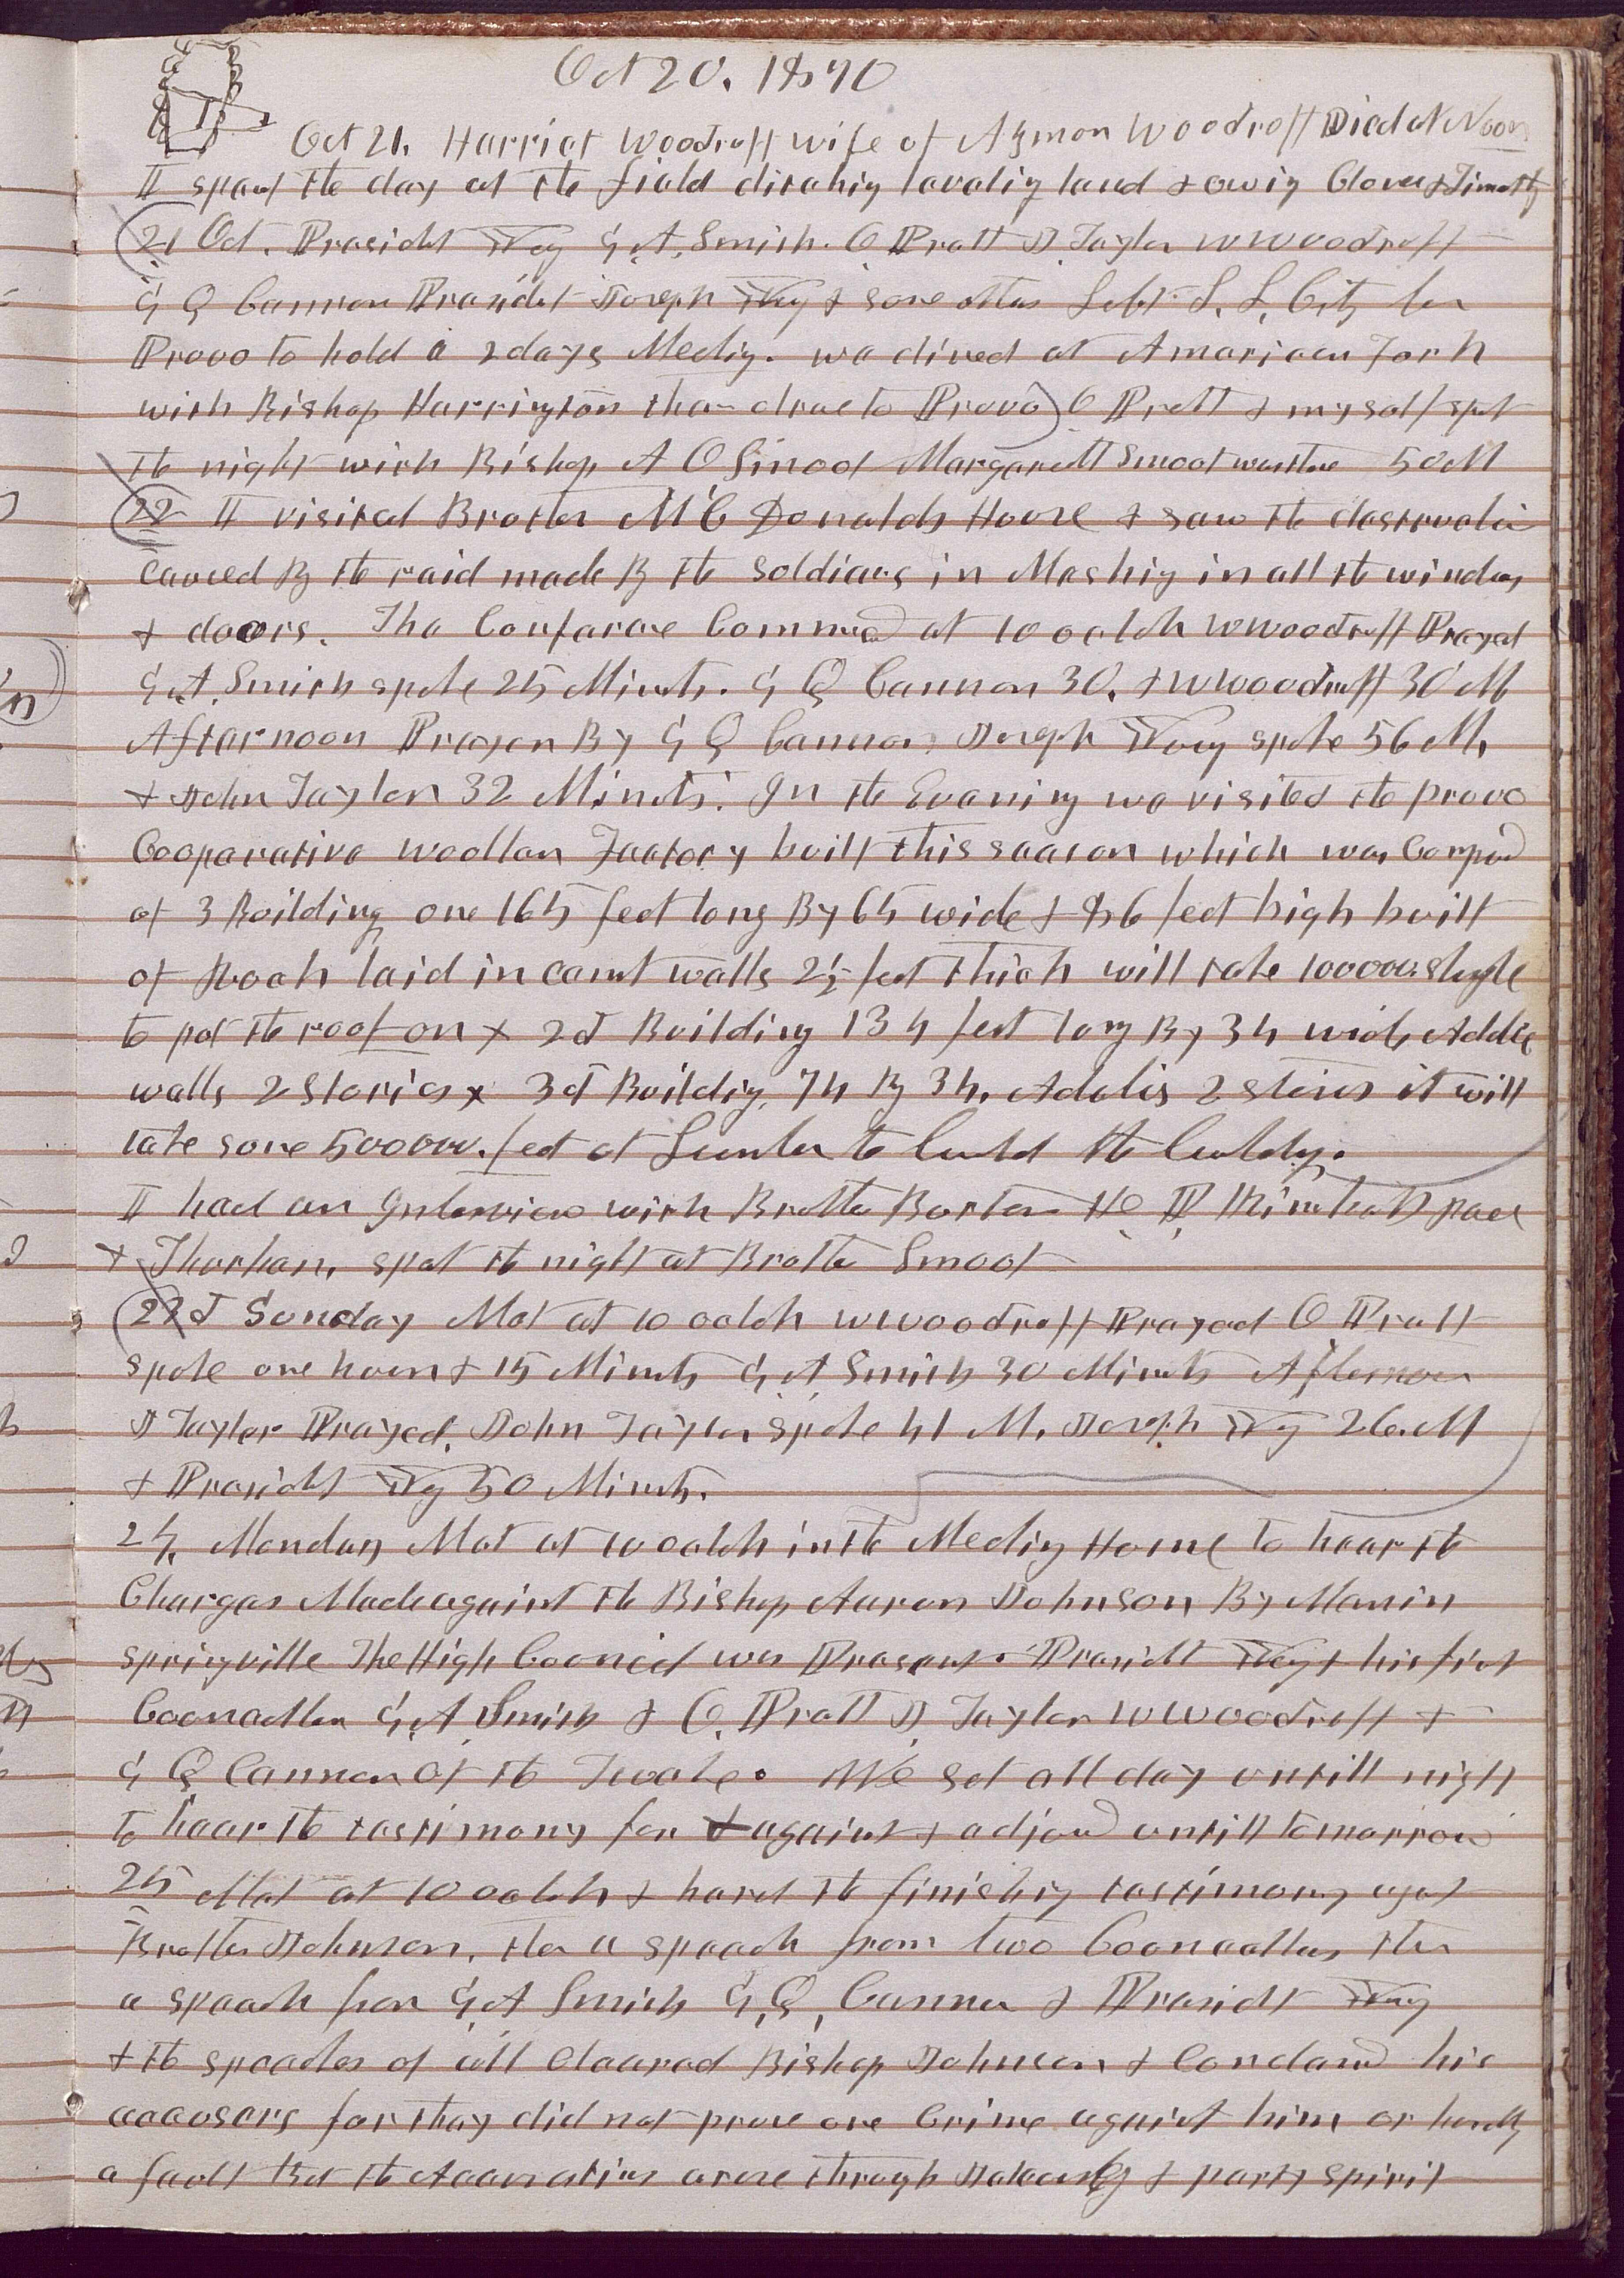 Oct 20. 1870
Oct 21. Harriet Woodruff wife of Azmon Woodruff Died at Noon
I spent the day at the field ditching leveling land & sowing Clover & Timothy
21 Oct. Presidet Young G. A. Smith. O Pratt J Taylor W Woodruff
G Q Cannon Presidet Joseph Young & some others Left S. L. City for
Provo to hold a 2 days Meeting. we dined at American Fork
with Bishop Harrington then drove to Provo O Pratt & myself spet
the night with Bishop A O Smoot Margarett Smoot was there 50 M
22 I visited Brother McDonalds House & saw the destruction
caused By the raid made By the Soldiers in Mashing in all the windows
& doors. The Conference Commened at 10 oclok W Woodruff Prayed
G. A. Smith spoke 25 Minuts. G Q Cannon 30. & W Woodruff 30 M
Afternoon Prayer By G Q Cannon Joseph Young spoke 56 M,
& John Taylor 32 Minuts. In the Evening we visited the provo
Cooperative woollen Factory built this season which was Composed
of 3 Building one 165 feet long By 65 wide & 86 feet high built
of Rock laid in cemet walls 2½ feet thick will take 100000 shingle
to put the roof on x 2d Building 134 feet long By 34 wide Adobie
walls 2 Stories x 3d Building, 74 By 34. Adobies 2 stories it will
take some 500000. feet of Lumber to build the buildings.
I had an Interview with Brother Barton H P Kimball paul
& Thurban, spet the night at Brother Smoot
23d Sunday Met at 10 oclok W Woodruff Prayed O Pratt
spoke one hour & 15 Minuts G. A Smith 30 Minuts Afternoon
J Taylor Prayed. John Taylor spoke 41 M. Joseph Young 26. M
& Presidet Young 50 Minuts.
24. Monday Met at 10 oclok in the Meeting House to hear the
Charges Made against the Bishop Aaron Johnson By Men in
Springville The High Councel was Present. Presidet Young & his first
Councellor G. A Smith & O. Pratt J Taylor W Woodruff &
G Q Cannon of the Twelve. We set all day untill night
to hear the testimony for & against & adjourned untill tomorrow
25 Met at 10 oclok & hard the finishing testimony agst
Brother Johnson. then a speech from two Councellors then
a speech from G. A Smith G, Q, Cannon & Presidet Young
& the speeches of all Cleared Bishop Johnson & Condemd his
accusers for they did not prove one Crime against him or hardly
a fault But the Accusations arose through Jealousy & party spirit